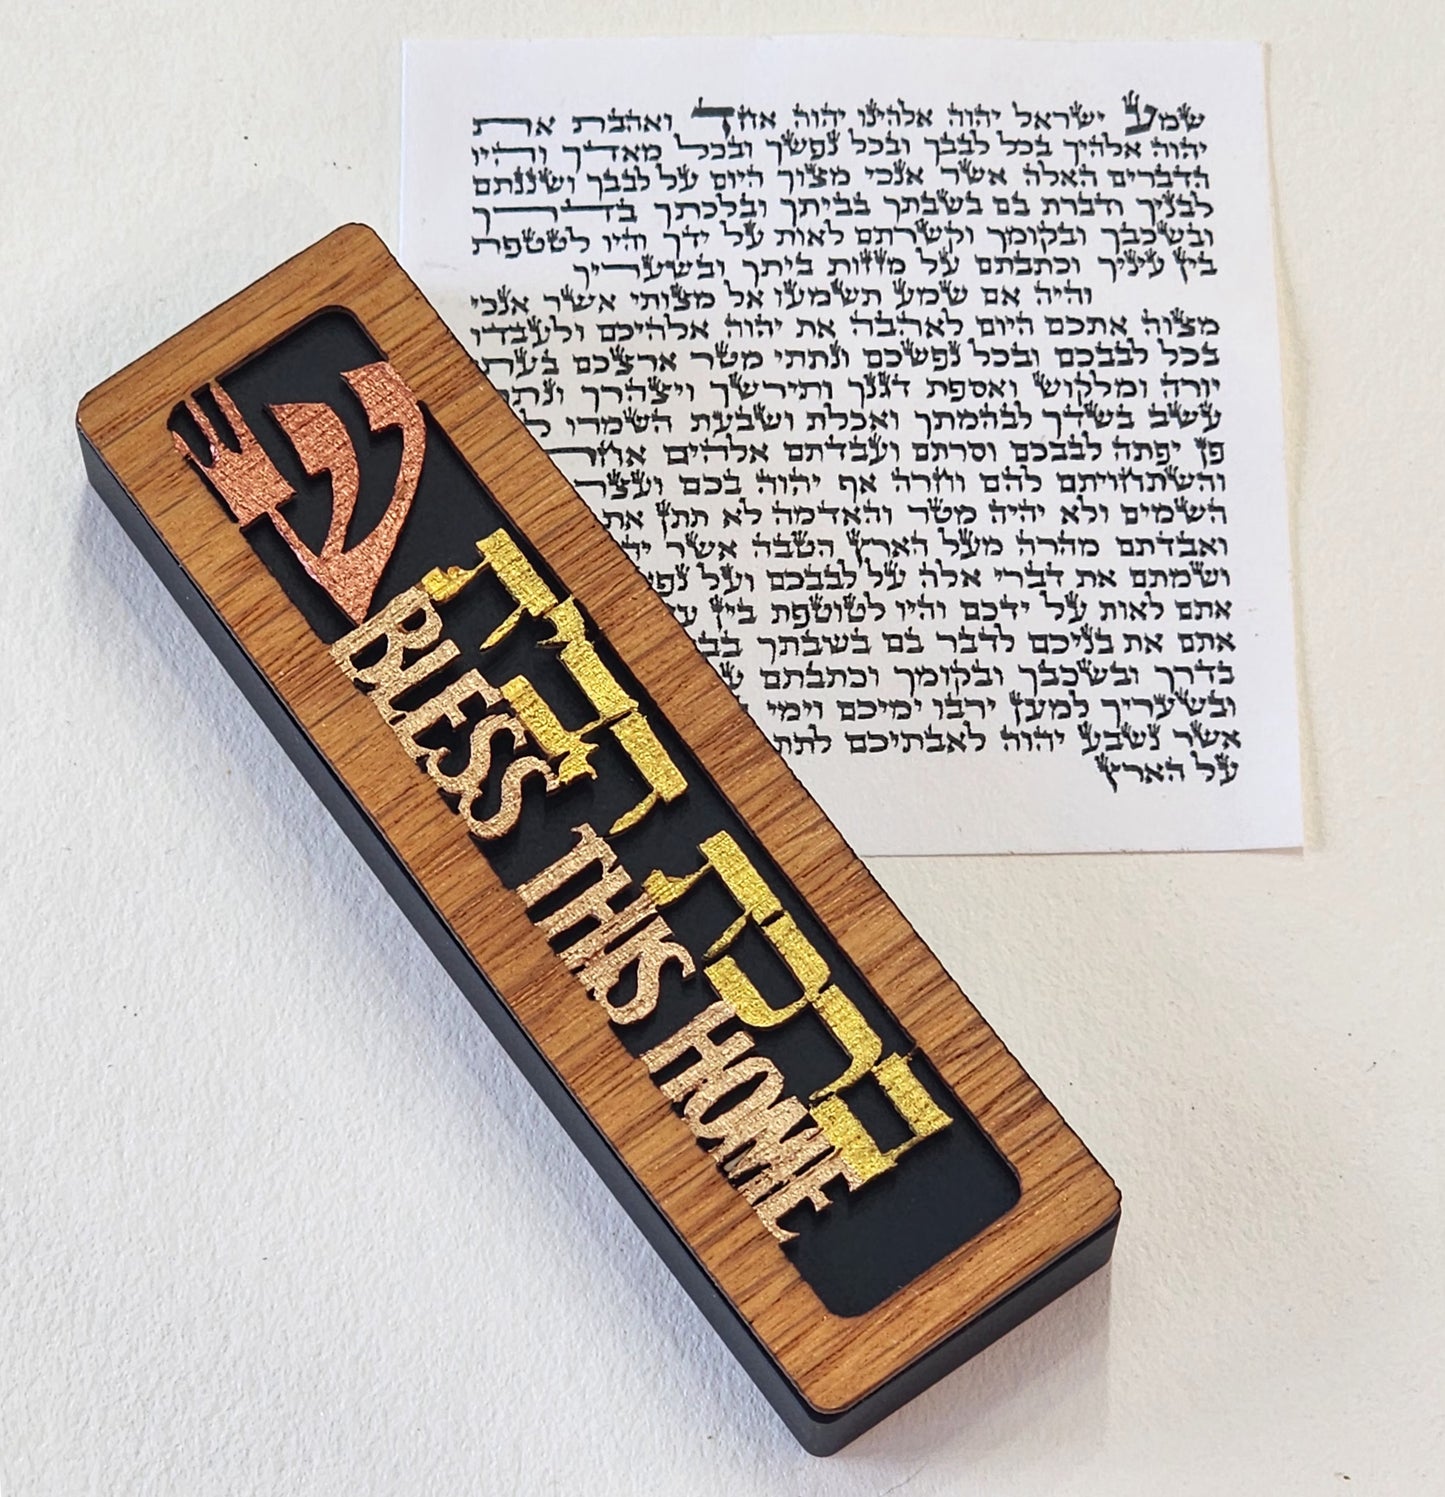 שמע ישראל יהוה אלהינו יהוה אחד ואהבת את
יהוה אלהיך בכל לבבך ובכל נפשך ובכל מאדך והיו
הדברים האלה אשר אנכי מצוך היום על לבבך ושננתם
לבניך ודברת בם בשבתך בביתך ובלכתך בדרך
ובשכבך ובקומך וקשרתם לאות על ידך והיו לטטפת
בין עיניך וכתבתם על מזזות ביתך ובשעריך
והיה אם שמע תשמעו אל מצותי אשר אנכי
מצוה אתכם היום לאהבה את יהוה אלהיכם ולעבדו
בכל לבבכם ובכל נפשכם ונתתי מטר ארצכם בעתו
יורה ומלקוש ואספת דגנך ותירשך ויצהרך
עשב בשדך לבהמתך ואכלת ושבעת השמרו
פן יפתה לבבכם וסרתם ועבדתם אלהים
והשתחויתם להם וחרה אף יהוה בכם ועצר
השמים ולא יהיה מטר והאדמה לא תתן את
ואבדתם מהרה מעל הארץ הטבה אשר
ושמתם את דברי אלה על לבבכם ועל
אתם לאות על ידכם והיו לטוטפת בין
אתם את בניכם לדבר בם בשבתך
בדרך ובשכבך ובקומך וכתבתם
ובשעריך למען ירבו ימיכם וימי
אשר נשבע יהוה לאבתיכם לתת
על הארץ
ש
ברכת הבית
BLESS THIS HOME